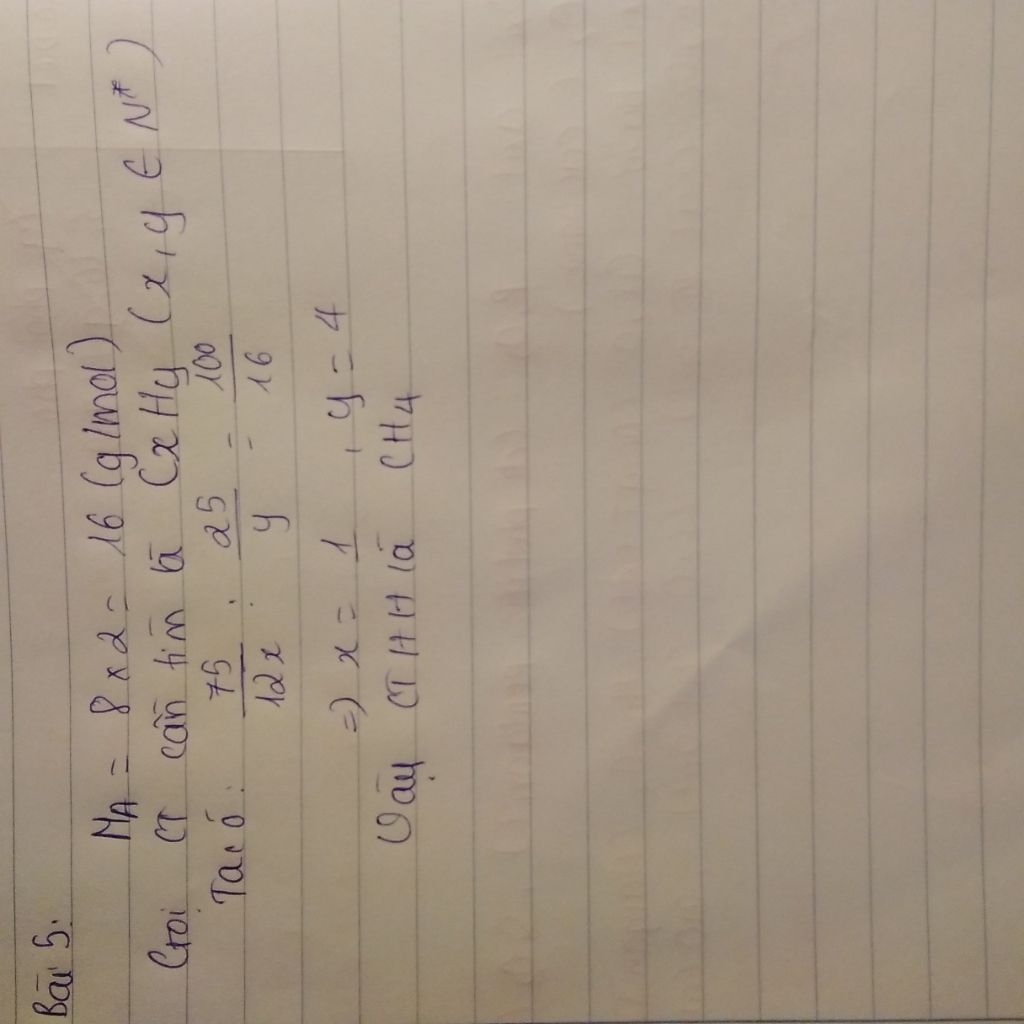 Bài 5.
MA = 8 x 2 = 16 (g/mol)
Gọi CT cần tìm là CxHy (x, y ∈ N*)
Ta có: 75/12x = 25/y = 100/16
=) x = 1, y = 4
Vậy CTHH là CH4